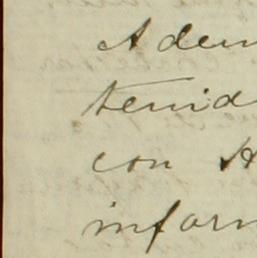 Adem
tenid
con H
inform